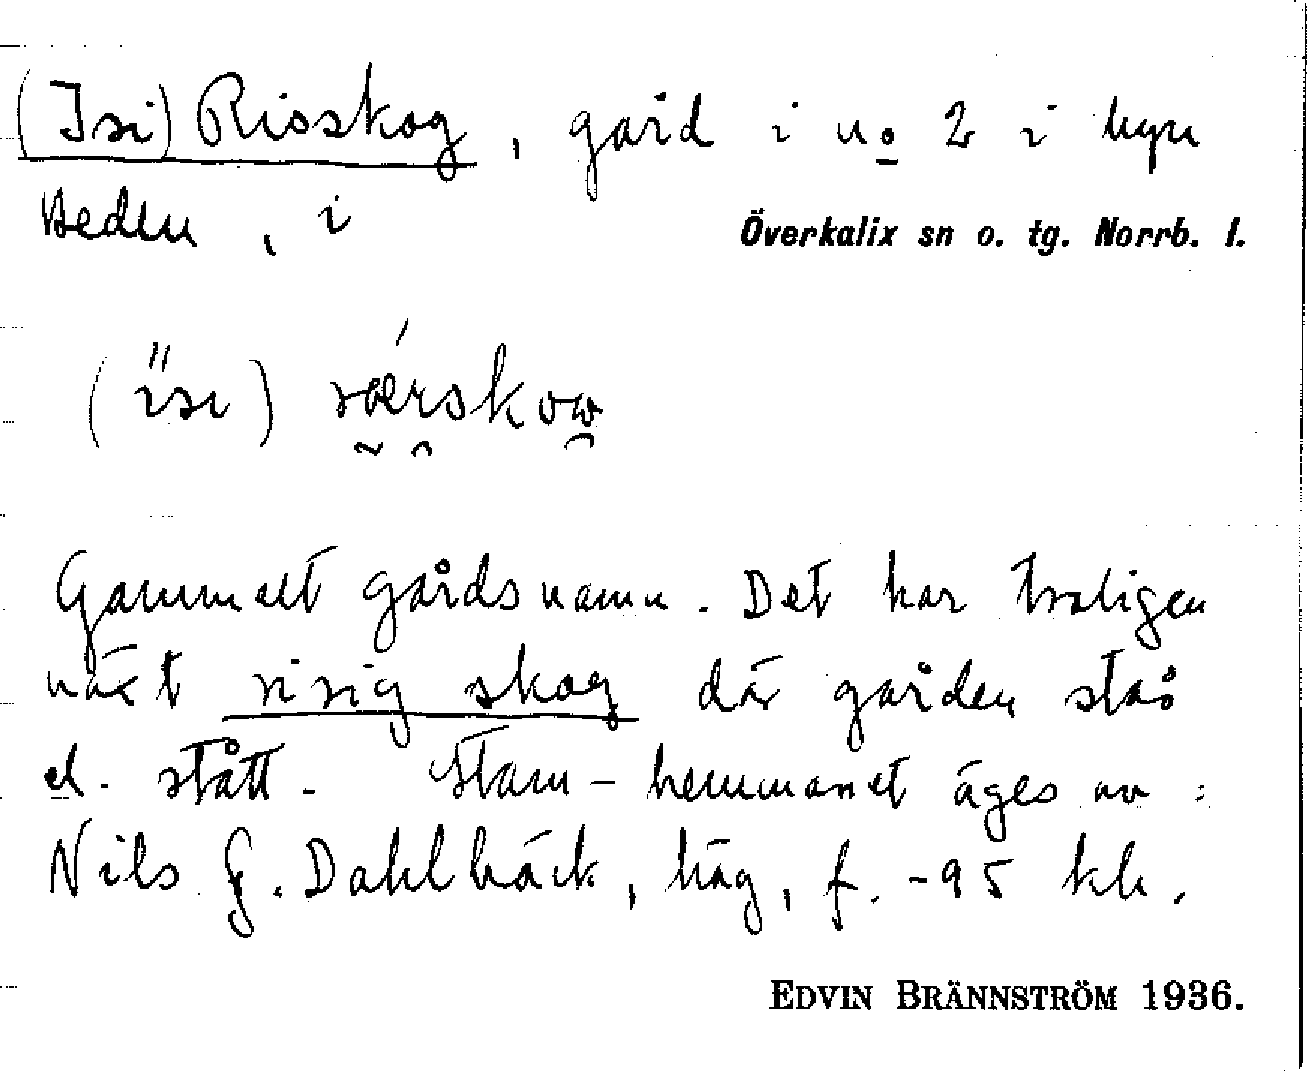 (Isi) Risskog, gård i no 2 i byn
Heden, i
Överkalix sn o. tg. Norrb. l.
(ïsi)
Gammalt gårdsnamn. Det har troligen
växt risig skog där gården står
el. stått. Stam-hemmanet äges av:
Nils G. Dahlbäck, häg, f. -95 kh.
EDVIN BRÄNNSTRÖM 1936.